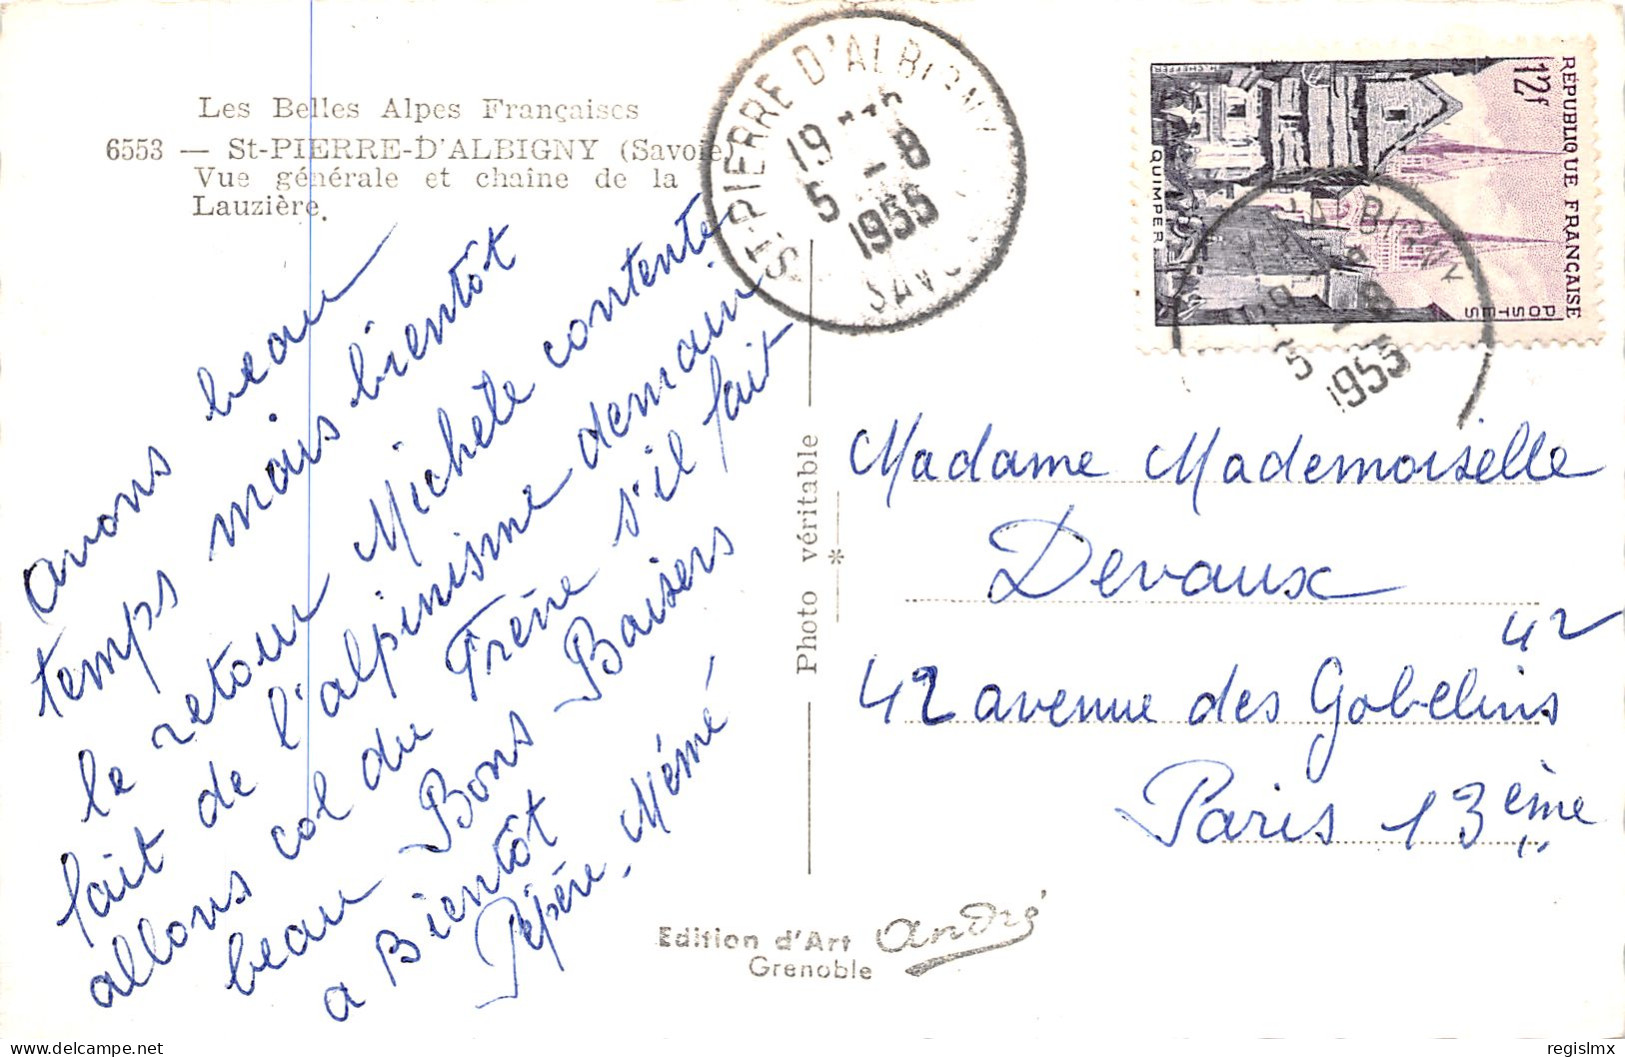 Les Belles Alpes Françaises
6553 — St-PIERRE-D'ALBIGNY (Savoie)
Vue générale et chaîne de la
Lauzière.
avons beau
temps mais bientôt
le retour Michèle contente
fait de l'alpinisme demain
allons col du Frêne s'il fait
beau Bons Baisers
a Bientôt
Pépère - Mémé
ST-PIERRE D'ALBIGNY
19
5 - 8
1955
SAV
REPUBLIQUE FRANÇAISE
12f
POSTES
QUIMPER
H. CHEFFER
ALBIGNY
5 - 8
1955
Photo véritable
Madame Mademoiselle
Devaux
42
42 avenue des Gobelins
Paris 13ème
Edition d'Art André
Grenoble
delcampe.net
regislmx